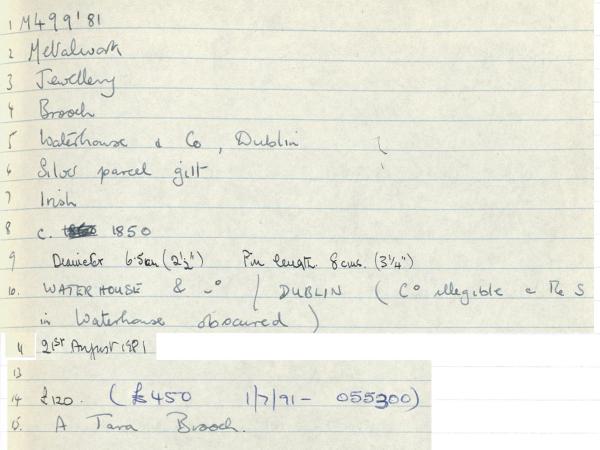 1 M499'81
2 Metalwork
3 Jewellery
4 Brooch
5 Waterhouse & Co, Dublin
6 Silver parcel gilt
7 Irish
8 c. 1850
9 Diameter 6.5cm (2½") Pin length. 8cms. (3¼")
10. WATERHOUSE & / DUBLIN (Cº illegible & the S
in Waterhouse obscured)
11 21ST August 1981
13
14 £120. (£450 1/7/91 - 055300)
15. A Tara Brooch.